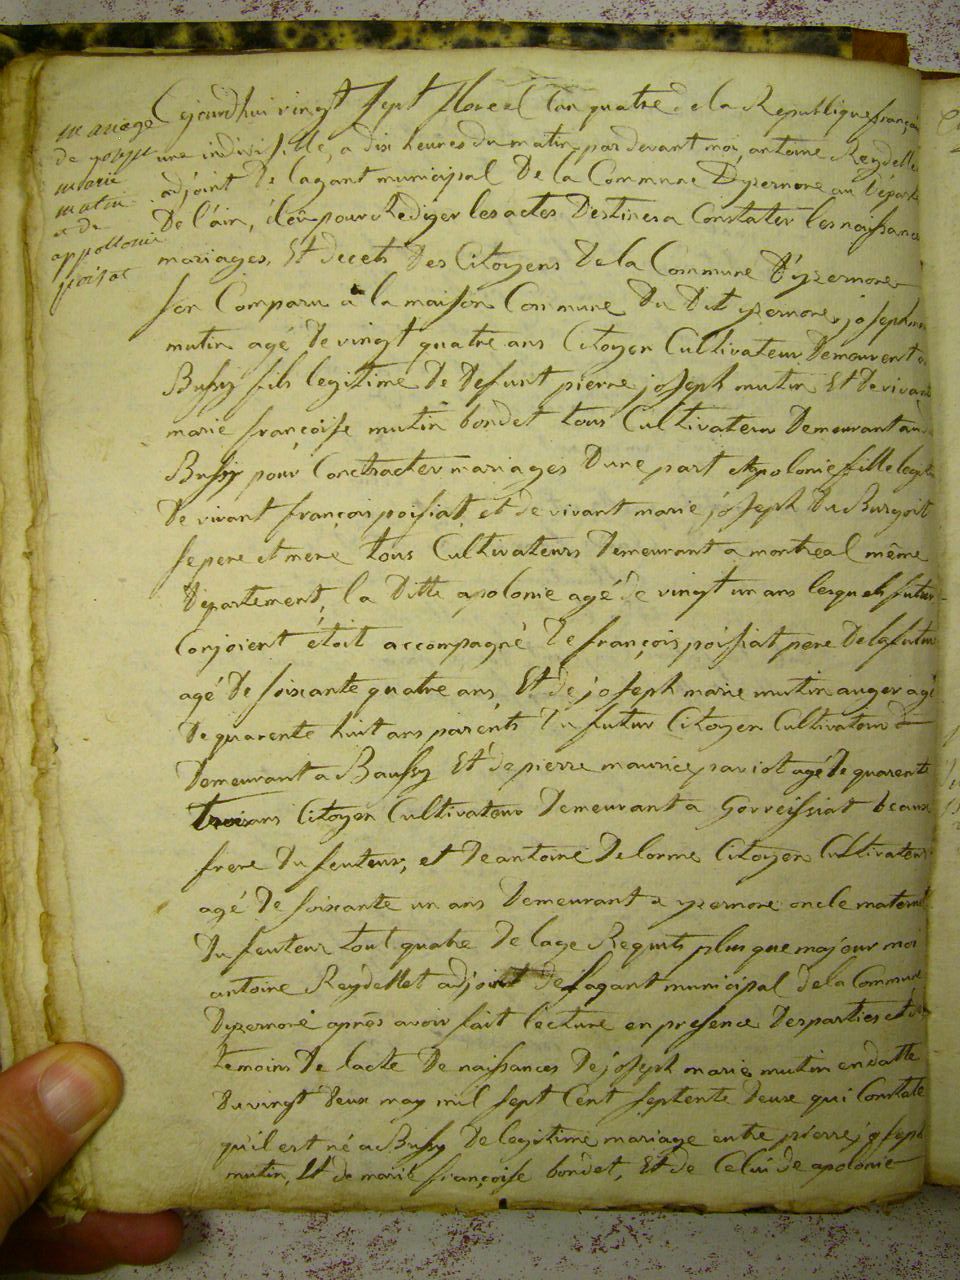 mariage
de joseph
marie
mutin
et de
appollonie
poisat
Cejourdhui vingt sept floreal lan quatre de la Republique françai
une indivisille, a dix heures du matin pardevant moi, antoine Reydellet
adjoint de lagant municipal de la Commune Dyzernore au départe
De l'ain, élû pour Rediger les actes Destines a Constater les naissance
mariages, Et decets des Citoyens de la Commune d'yzernore
son Comparu a la maison Commune du dit yzernore, joseph m
mutin agé de vingt quatre ans Citoyen Cultivateur Demeurent a
Bussy fils legitime de deffunt pierre joseph mutin Et de vivant
marie françoise mutin bondet tous Cultivateur Demeurant au
Bussy pour Conctracter mariages dune part et apolonie fille legit
de vivant françois poisiat, et de vivant marie joseph du Burgoit
se pere et mere tous Cultivateurs Demeurant a montreal même
Departement, la Ditte apolonie agé de vingt un ans lesquels futur
Conjoient étoit accompagné de françois poisiat pere de la futur
agé de soixante quatre ans, Et de joseph marie mutin auger agé
De quarente huit ans parents du futur Citoyen Cultivateur
Demeurant a Baussy Et de pierre maurice paviot agé de quarente
trois ans Citoyen Cultivateur Demeurant a Gorreissiat beaux
frere du feuteur, et de antoine Delorme Citoyen Cultivateur
agé de soixante un ans Demeurant a yzernore oncle maternel
du feuteur tout quatre de lage Requits plus que majour moi
antoine Reydellet adjoint de lagant municipal de la Commune
Dyzernore après avoir fait lecture en presence des parties et de
temoins de lacte de naissances de joseph marie mutin en datte
Du vingt deux may mil sept Cent septente deux qui Constate
qu'il est né a Bussy de legitime mariage entre pierre joseph
mutin, Et de marie françoise bondet, Et de Celui de apolonie